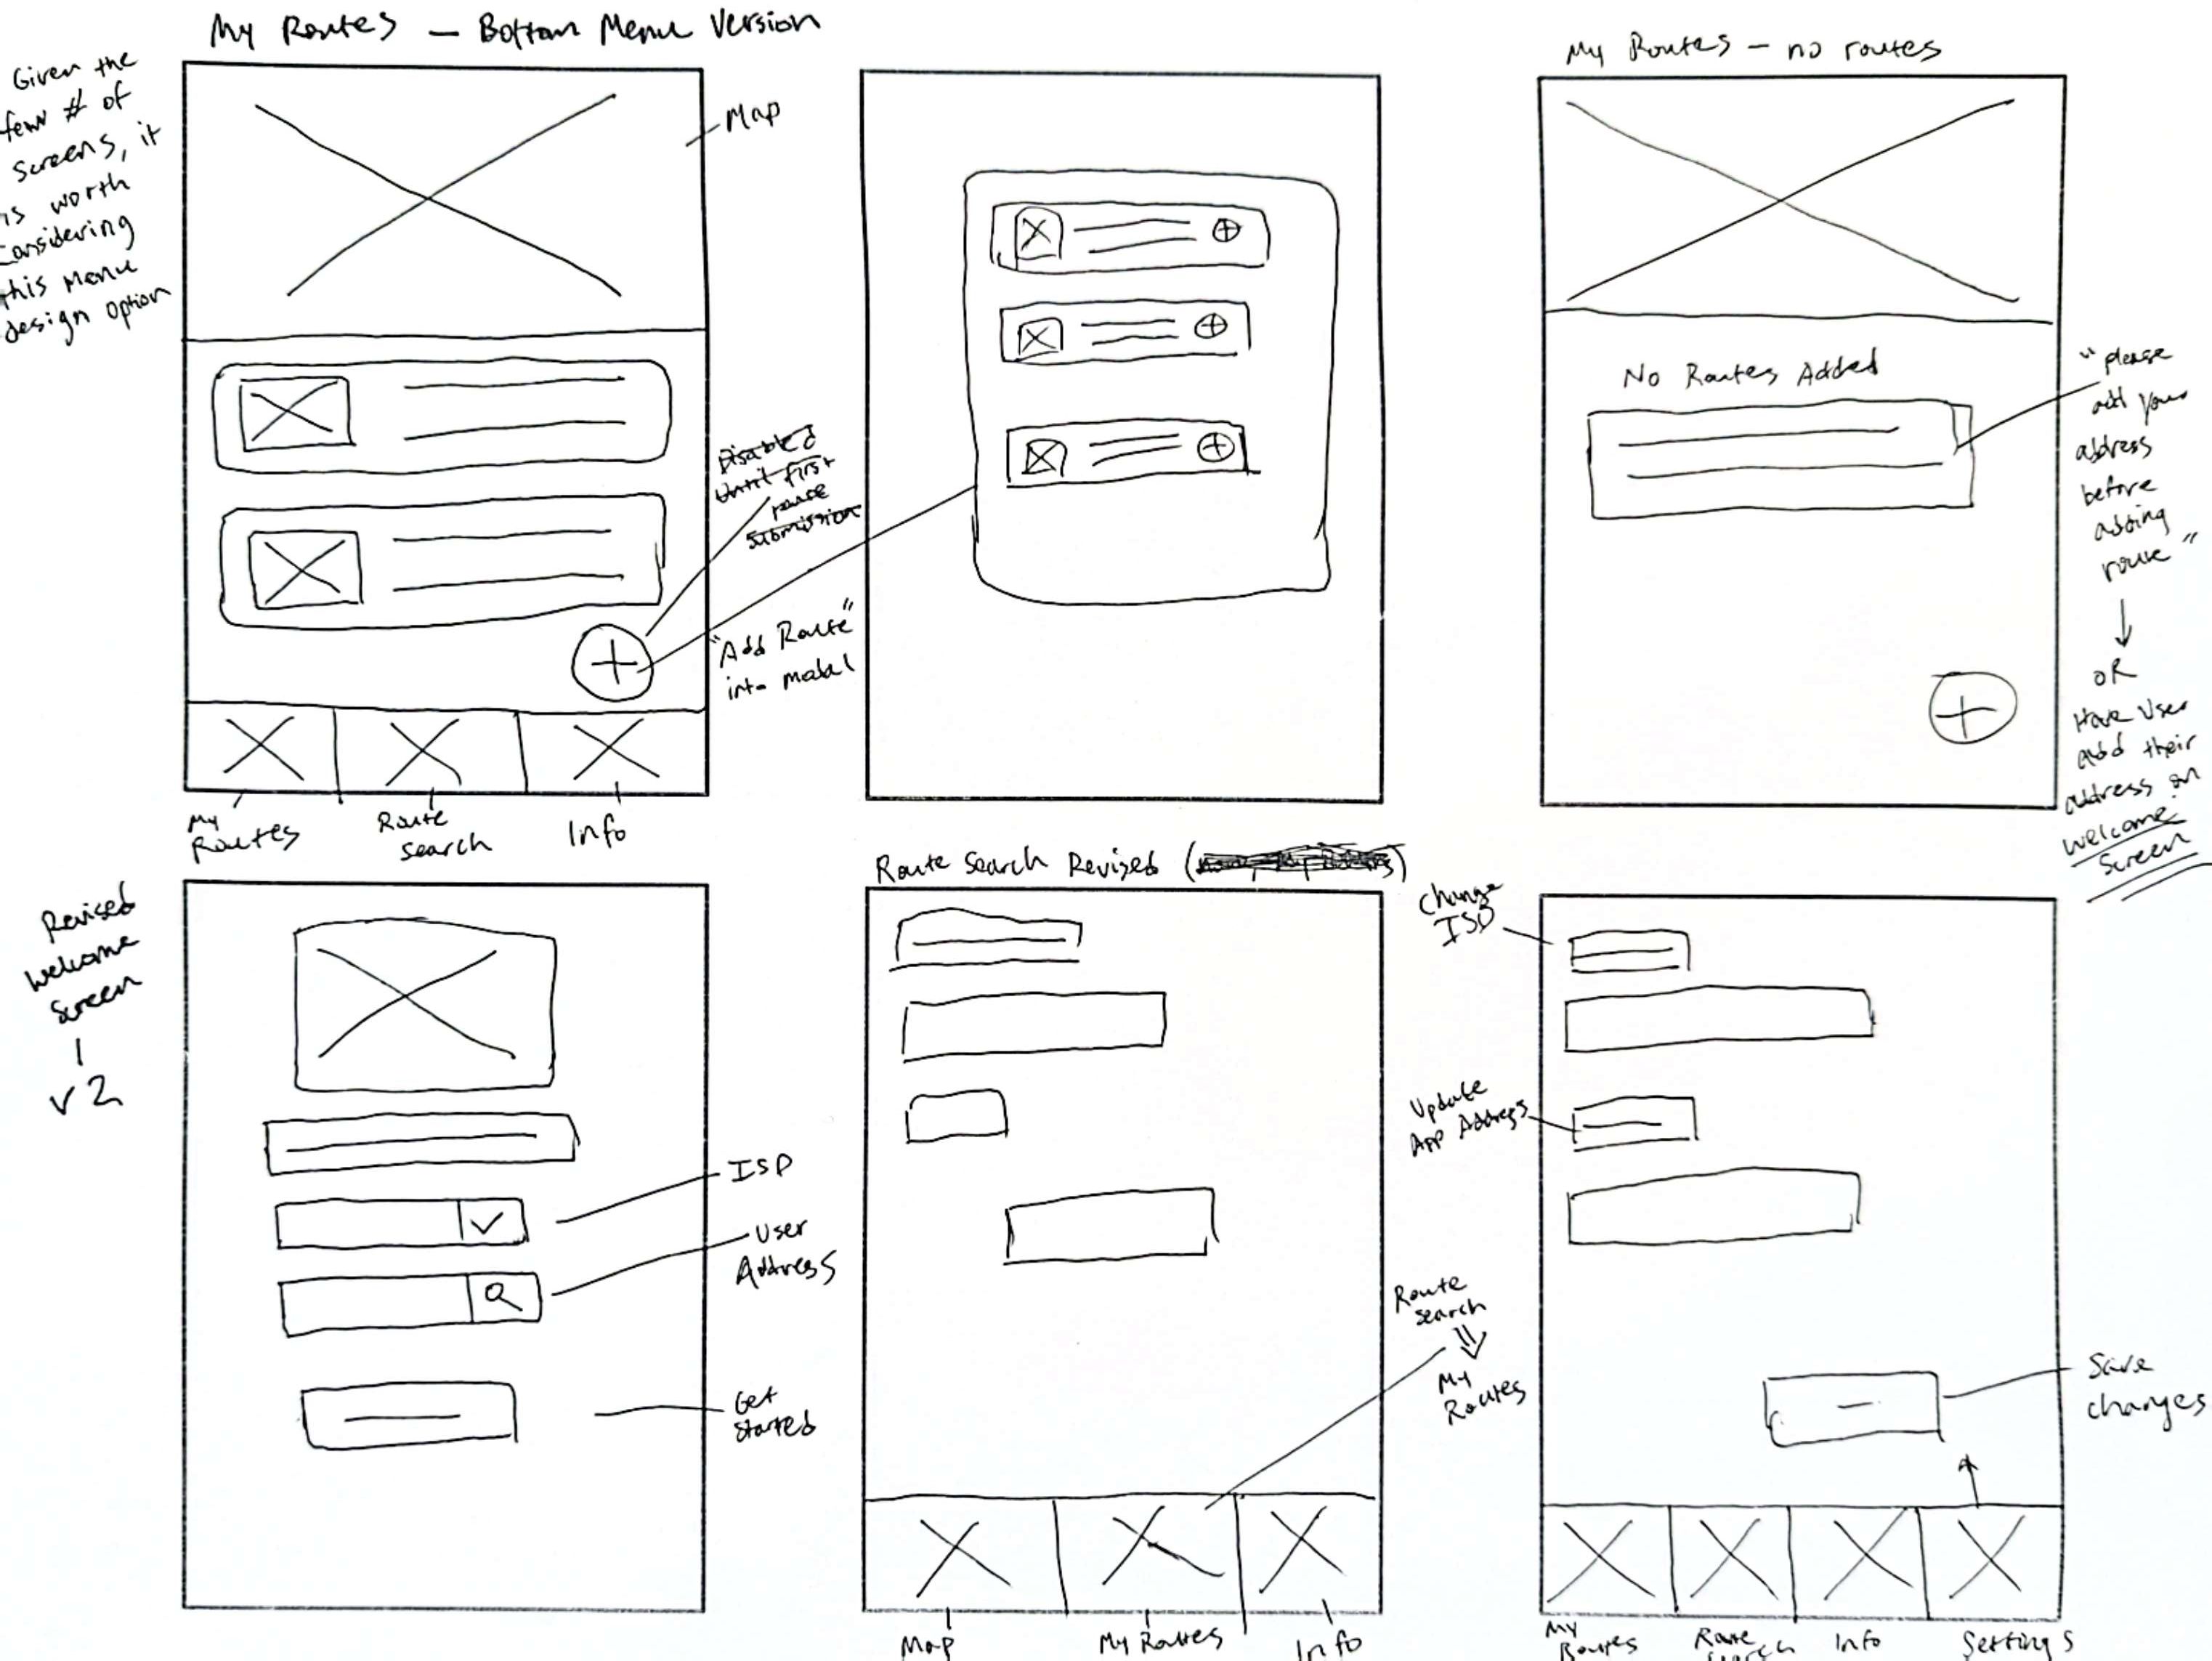 My Routes – Bottom Menu Version
Given the
few # of
screens, it
is worth
Considering
this Menu
design option
Map
Disabled
Until first
route
Submission
"Add Route"
into modal
My
Routes
Route
search
Info
My Routes – no routes
No Routes Added
"please
add your
address
before
adding
route"
OR
Have User
add their
address on
welcome
Screen
Revised
Welcome
Screen
V2
ISP
User
Address
Get
Started
Route Search Revised (
Route
search
My
Routes
Map
My Routes
Info
Change
Update
App Address
Save
changes
My
Routes
Route
Search
Info
Settings